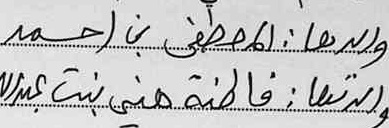 والدها: المصطفى بن احمد
والدتها: فاطنة هني بنت عبد الله